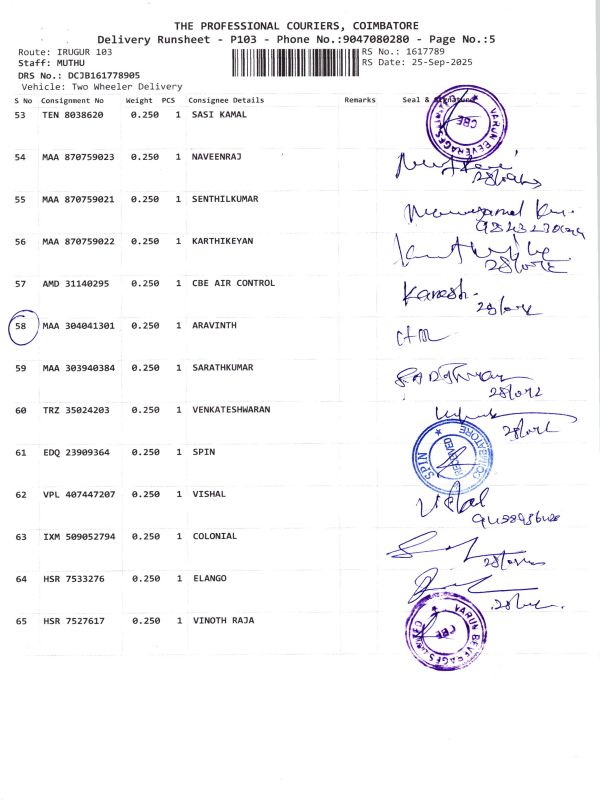 THE PROFESSIONAL COURIERS, COIMBATORE
Delivery Runsheet - P103 - Phone No.:9047080280 - Page No.:5
Route: IRUGUR 103 RS No.: 1617789
Staff: MUTHU RS Date: 25-Sep-2025
DRS No.: DCJB161778905
Vehicle: Two Wheeler Delivery
S No Consignment No Weight PCS Consignee Details Remarks Seal & Signature
53 TEN 8038620 0.250 1 SASI KAMAL
VARUN BEVERAGES LIMITED CBE
54 MAA 870759023 0.250 1 NAVEENRAJ
55 MAA 870759021 0.250 1 SENTHILKUMAR
56 MAA 870759022 0.250 1 KARTHIKEYAN
57 AMD 31140295 0.250 1 CBE AIR CONTROL
Kanesh
58 MAA 304041301 0.250 1 ARAVINTH
59 MAA 303940384 0.250 1 SARATHKUMAR
60 TRZ 35024203 0.250 1 VENKATESHWARAN
61 EDQ 23909364 0.250 1 SPIN
SPIN COIMBATORE RECEIVED
62 VPL 407447207 0.250 1 VISHAL
Vishal
63 IXM 509052794 0.250 1 COLONIAL
64 HSR 7533276 0.250 1 ELANGO
65 HSR 7527617 0.250 1 VINOTH RAJA
VARUN BEVERAGES LIMITED CBE